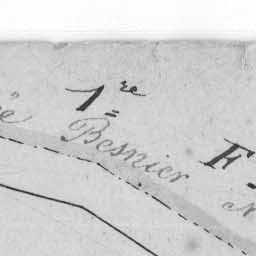 1re
Besnier
F